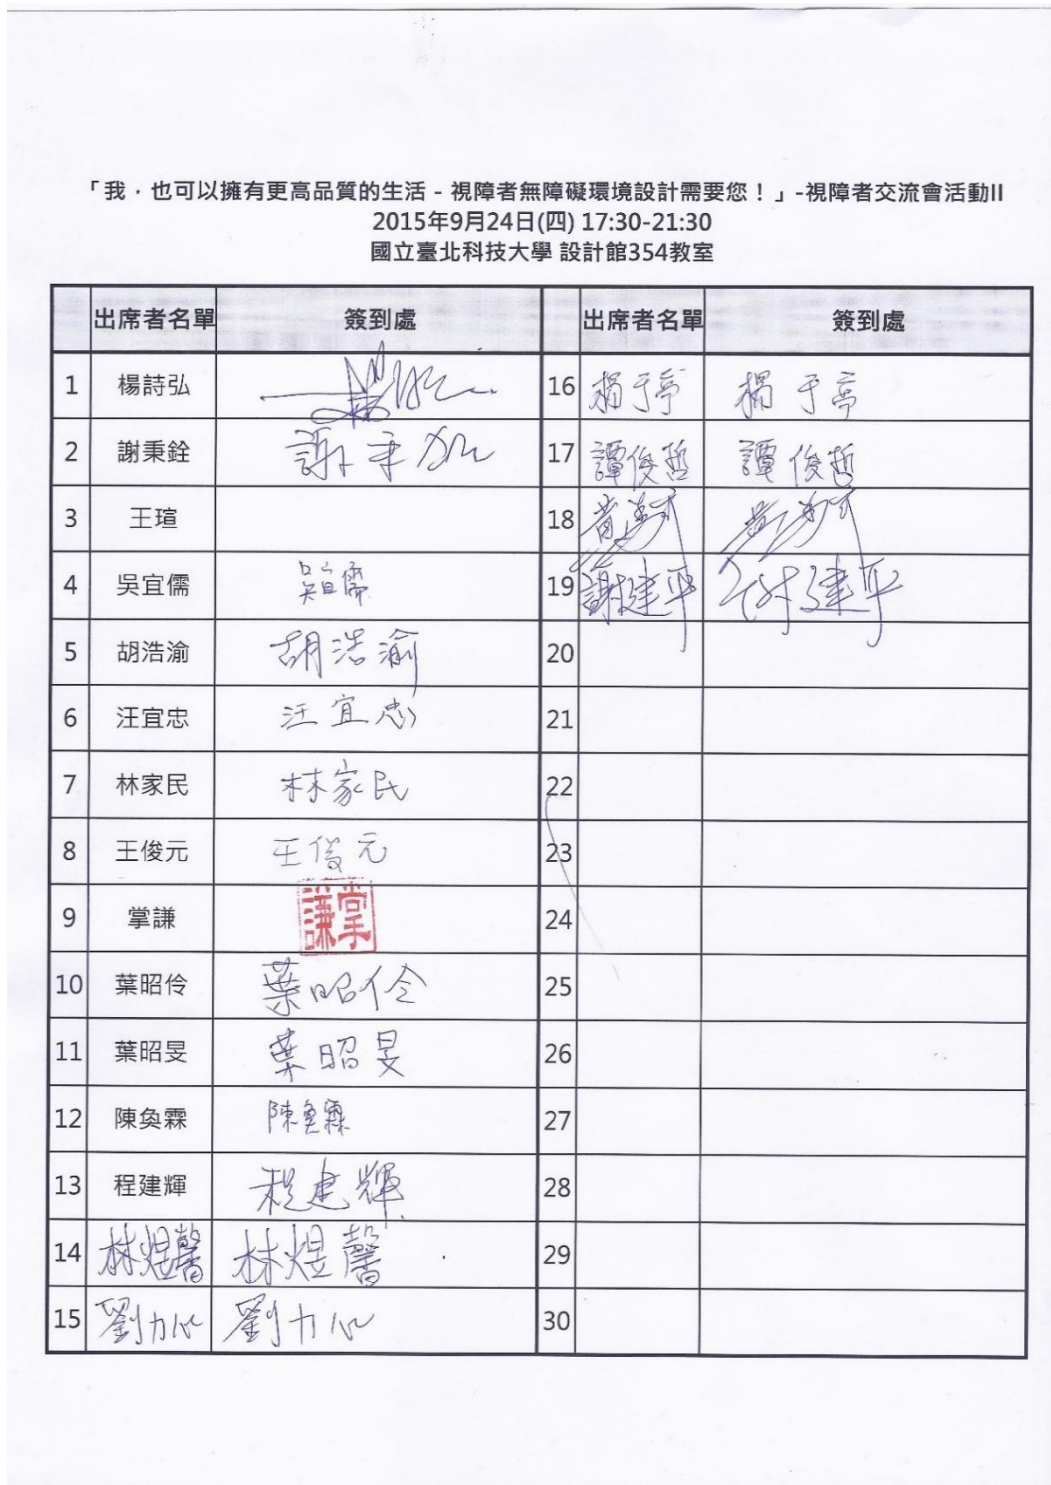 「我，也可以擁有更高品質的生活 - 視障者無障礙環境設計需要您！」-視障者交流會活動II
2015年9月24日(四) 17:30-21:30
國立臺北科技大學 設計館354教室
出席者名單 簽到處 出席者名單 簽到處
1 楊詩弘 16 楊于亭 楊于亭
2 謝秉銓 謝秉銓 17 譚俊哲 譚俊哲
3 王瑄 18
4 吳宜儒 吳宜儒 19 謝建平 謝建平
5 胡浩渝 胡浩渝 20
6 汪宜忠 汪宜忠 21
7 林家民 林家民 22
8 王俊元 王俊元 23
9 掌謙 掌謙 24
10 葉昭伶 葉昭伶 25
11 葉昭旻 葉昭旻 26
12 陳奐霖 陳奐霖 27
13 程建輝 程建輝 28
14 林煜馨 林煜馨 29
15 劉力心 劉力心 30